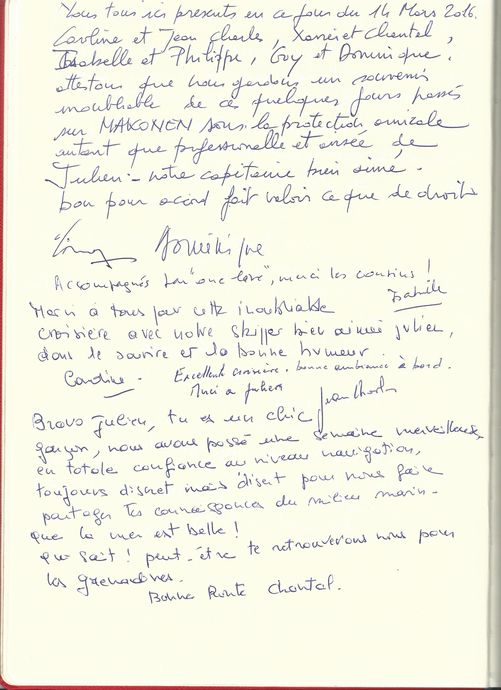 Nous tous ici présents en ce jour du 14 Mars 2016.
Caroline et Jean Charles, Xavier et Chantal,
Isabelle et Philippe, Guy et Dominique.
attestons que nous gardons un souvenir
inoubliable de ces quelques jours passés
sur MAKONEN sous la protection amicale
autant que professionnelle et
Julien - notre capitaine bien aimé.
bon pour accord fait valoir ce que de droit
Dominique
Accompagnés "one love", merci les cousins !
Isabelle
Merci à tous pour cette inoubliable
croisière avec notre skipper bien aimé Julien,
dans le sourire et la bonne humeur.
Caroline. Excellente croisière, bonne ambiance à bord.
Merci à Julien
Jean Charles
Bravo Julien, tu es un chic
garçon, nous avons passé une semaine merveilleuse,
en totale confiance au niveau navigation,
toujours discret mais disert pour nous faire
partager tes connaissances du milieu marin -
que la mer est belle !
qui sait ! peut-être te retrouverons nous pour
les grenadines.
Bonne Route Chantal.